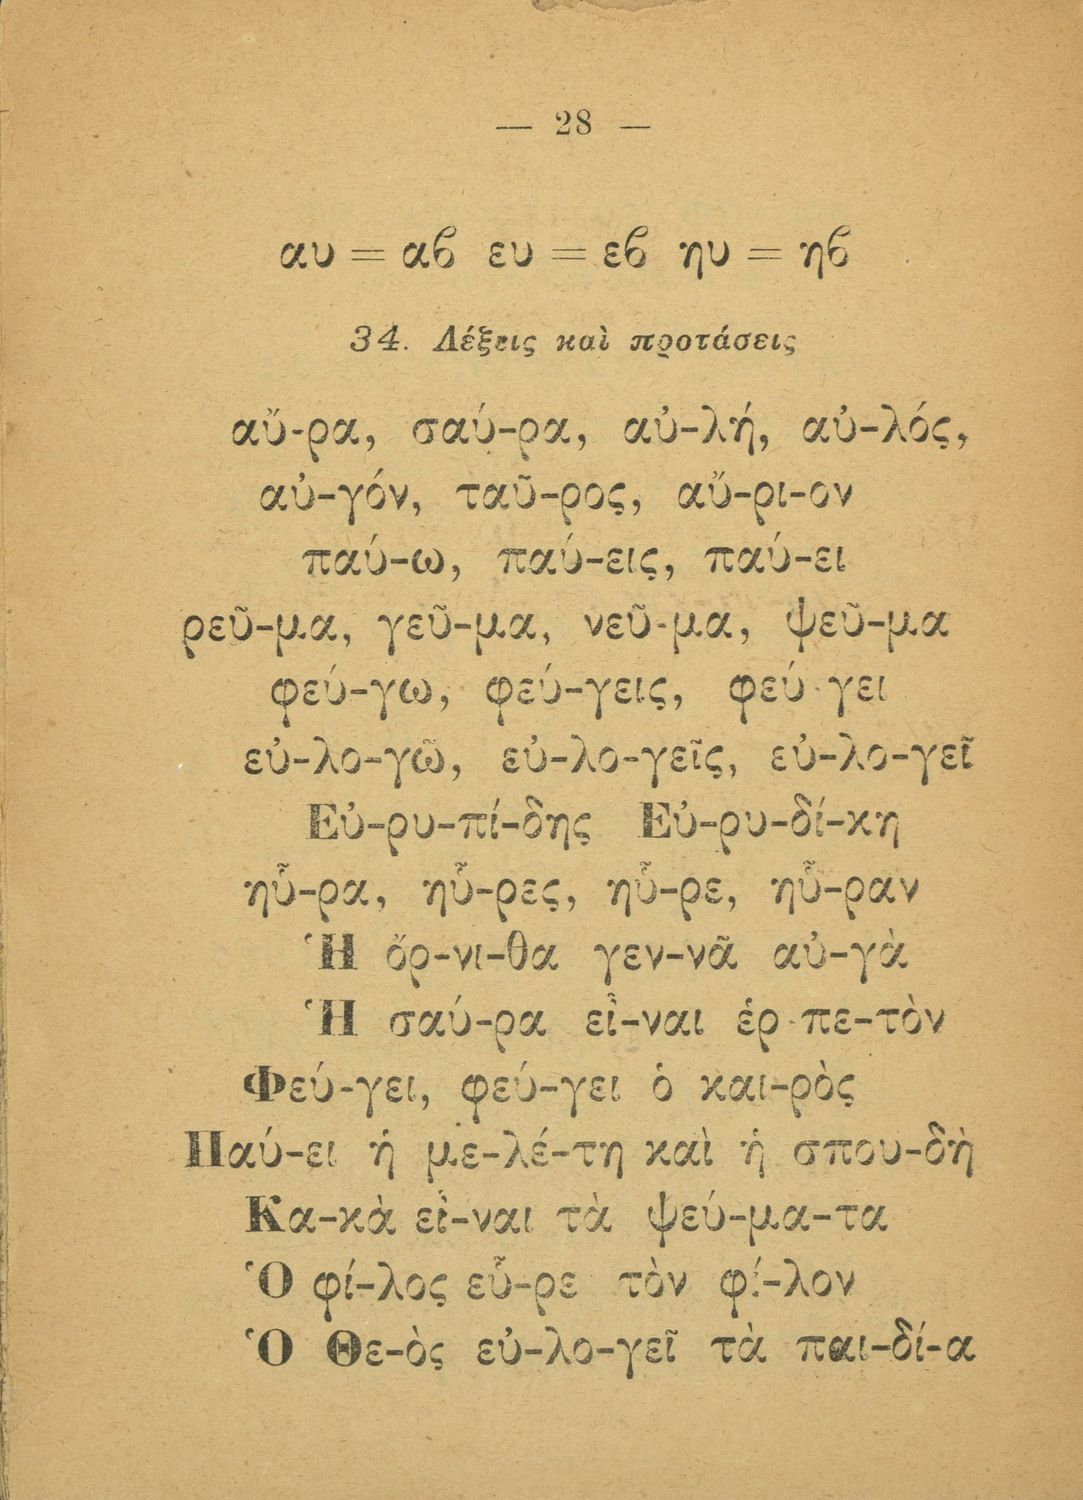 — 28 —
αυ = αϐ ευ = εϐ ηυ = ηϐ
34. Λέξεις καὶ προτάσεις
αὔ-ρα, σαύ-ρα, αὐ-λή, αὐ-λός,
αὐ-γόν, ταῦ-ρος, αὔ-ρι-ον
παύ-ω, παύ-εις, παύ-ει
ρεῦ-μα, γεῦ-μα, νεῦ-μα, ψεῦ-μα
φεύ-γω, φεύ-γεις, φεύ-γει
εὐ-λο-γῶ, εὐ-λο-γεῖς, εὐ-λο-γεῖ
Εὐ-ρυ-πί-δης Εὐ-ρυ-δί-κη
ηὗ-ρα, ηὗ-ρες, ηὗ-ρε, ηὗ-ραν
Ἡ ὄρ-νι-θα γεν-νᾶ αὐ-γὰ
Ἡ σαύ-ρα εἶ-ναι ἑρ-πε-τὸν
Φεύ-γει, φεύ-γει ὁ και-ρὸς
Παύ-ει ἡ με-λέ-τη καὶ ἡ σπου-δὴ
Κα-κὰ εἶ-ναι τὰ ψεύ-μα-τα
Ὁ φί-λος εὗ-ρε τὸν φί-λον
Ὁ Θε-ὸς εὐ-λο-γεῖ τὰ παι-δί-α